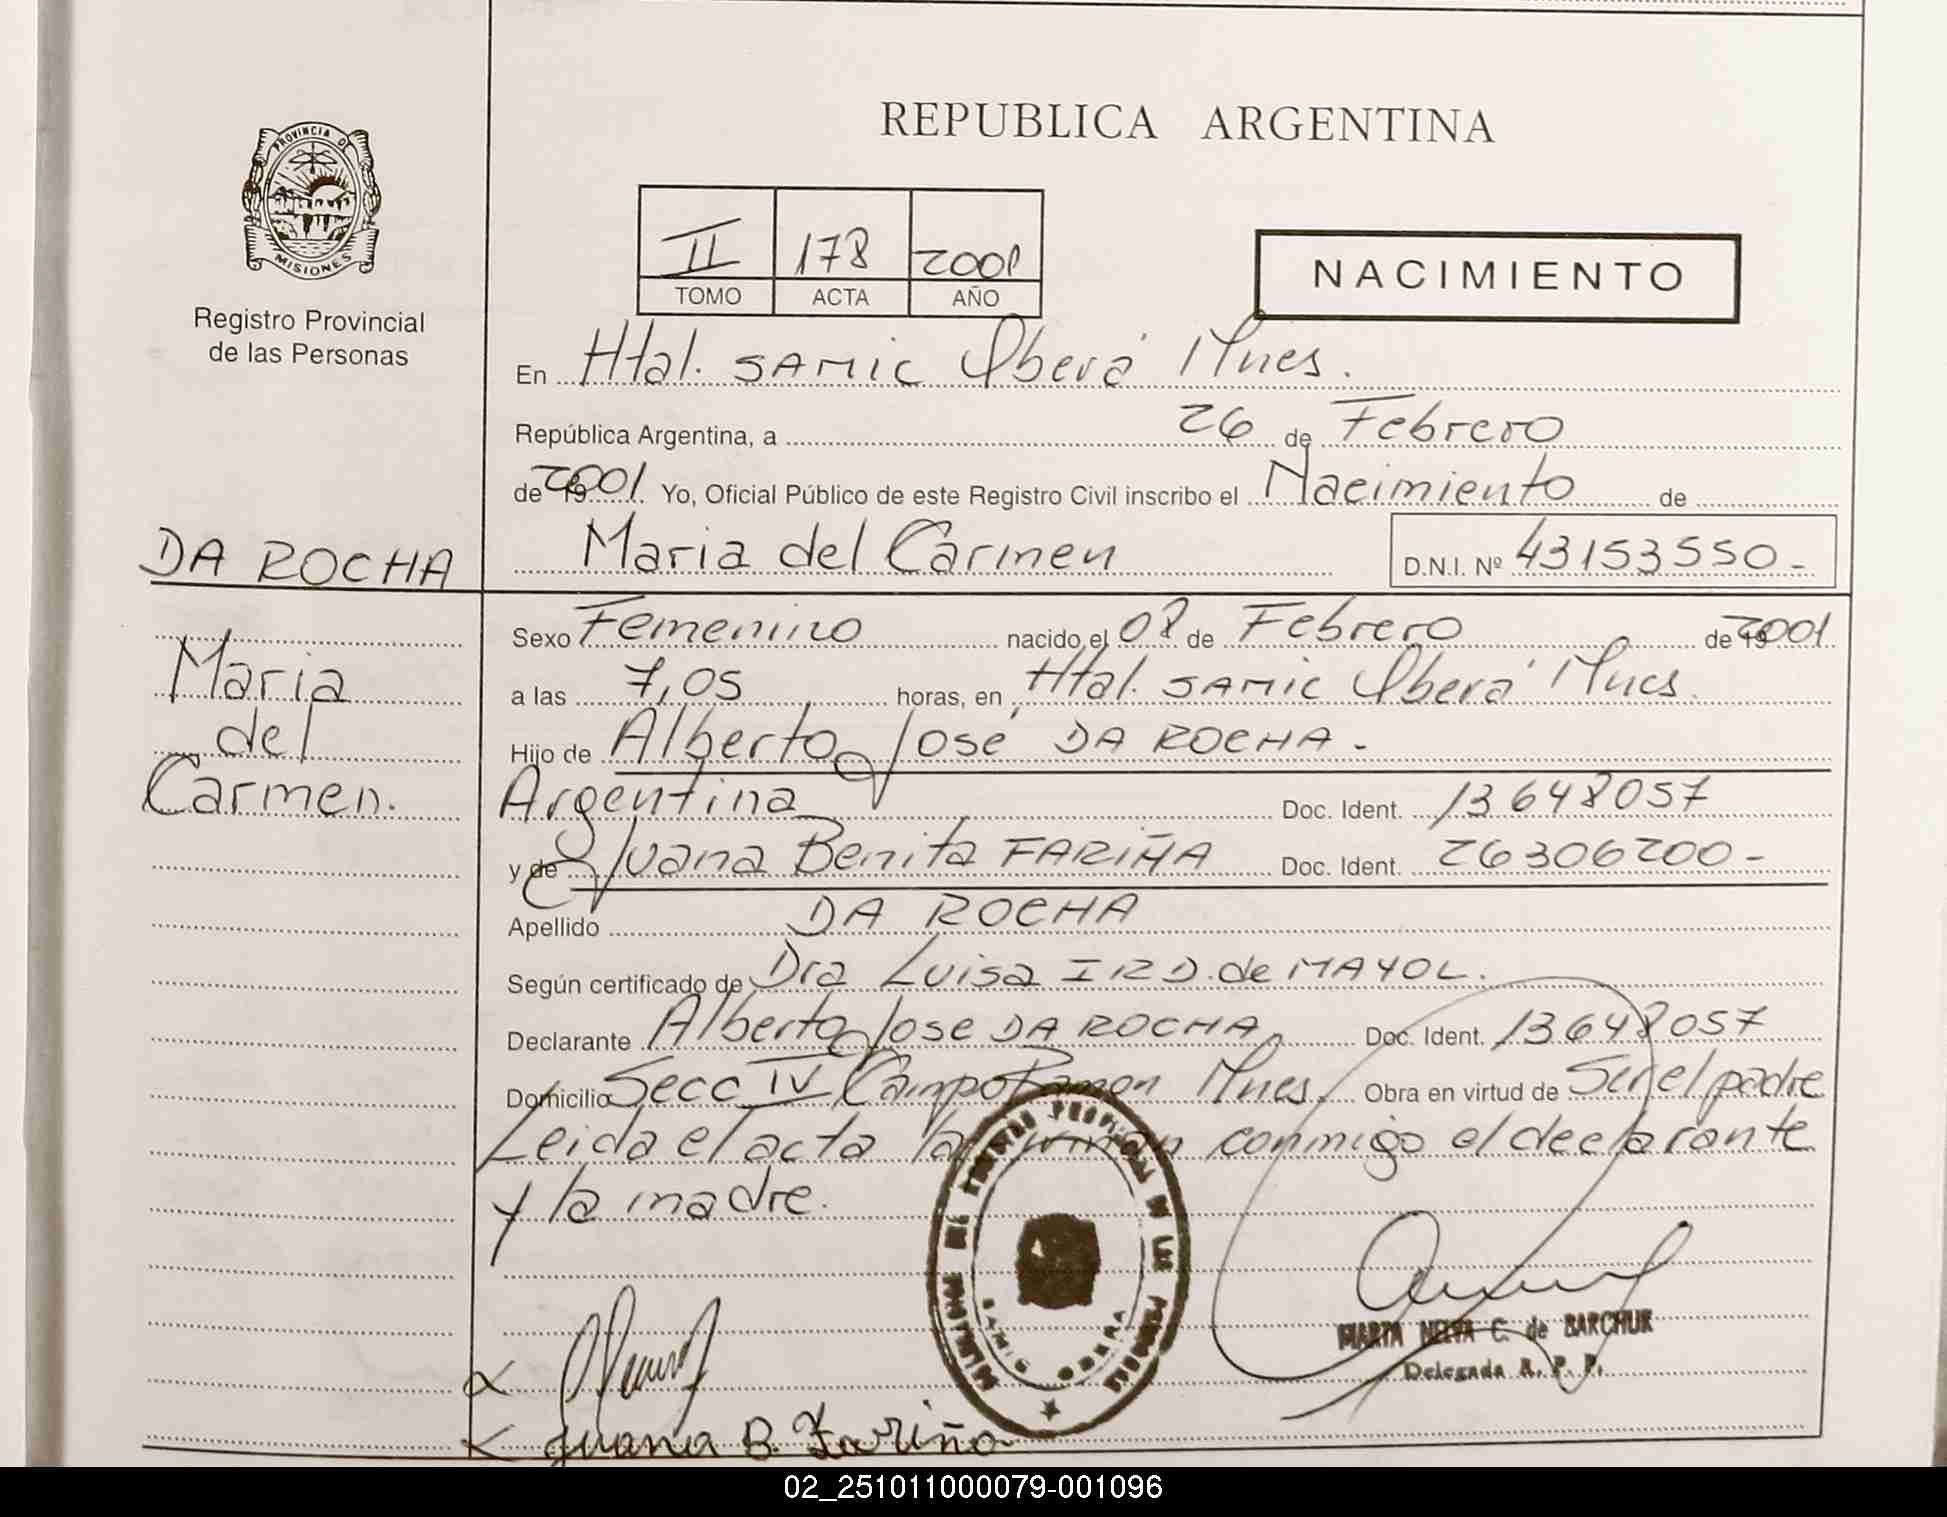 REPUBLICA ARGENTINA
PROVINCIA DE
MISIONES
Registro Provincial
de las Personas
II 178 2001
TOMO ACTA AÑO
NACIMIENTO
En Htal. SAMIC Oberá Mnes.
República Argentina, a 26 de Febrero
de 2001 Yo, Oficial Público de este Registro Civil inscribo el Nacimiento de
Maria del Carmen D.N.I. Nº 43153550-
DA ROCHA
Maria
del
Carmen.
Sexo Femenino nacido el 08 de Febrero de 2001
a las 7,05 horas, en Htal. SAMIC Oberá Mnes.
Hijo de Alberto José DA ROCHA -
Argentina Doc. Ident. 13648057
y de Juana Benita FARIÑA Doc. Ident. 26306200-
Apellido DA ROCHA
Según certificado de Dra Luisa I R D. de MAYOL.
Declarante Alberto Jose DA ROCHA Doc. Ident. 13648057
Domicilio Secc IV Campo Ramon Mnes. Obra en virtud de Ser el padre
Leida el acta la firman conmigo el declarante
y la madre.
PROVINCIAL DE LAS PERSONAS
SAMIC OBERA
MARTA NELVA C. de BARCHUK
Delegada R. P. P.
Juana B. Fariña
02_251011000079-001096